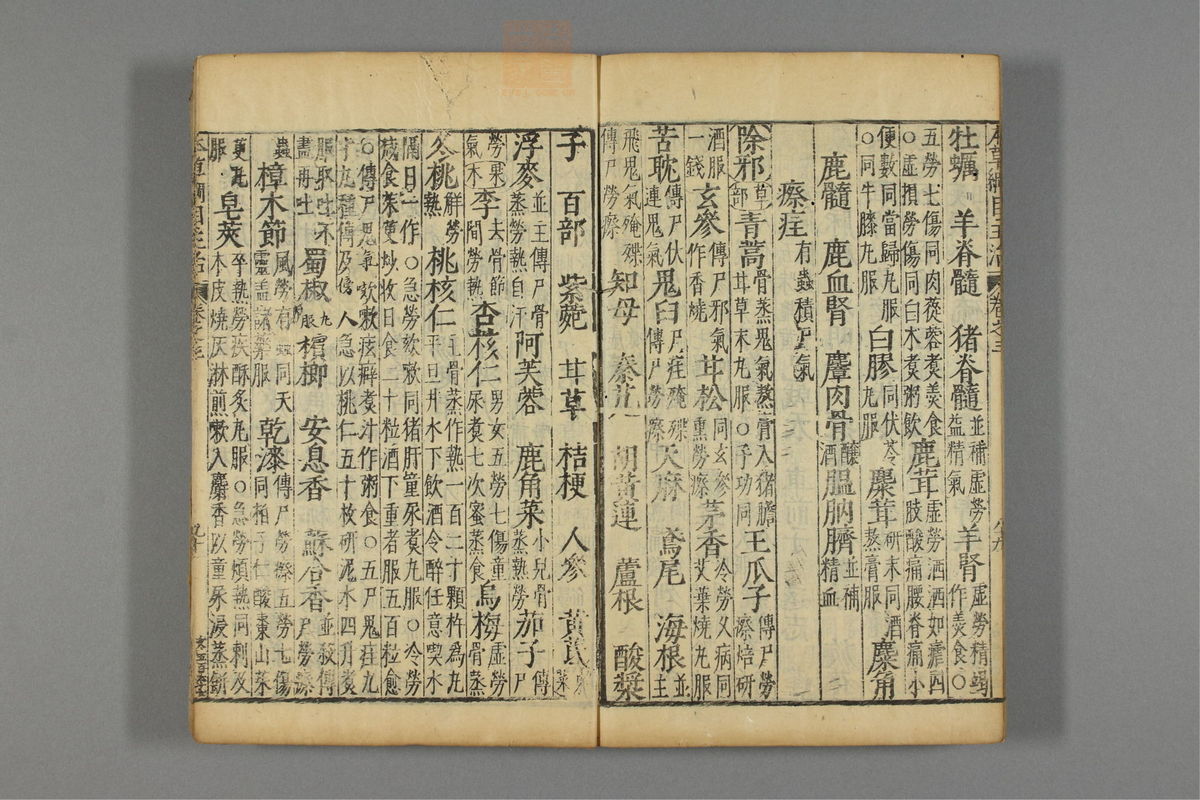 牡蠣 羊脊髓 猪脊髓並補虛勞益精氣 羊腎虛勞精竭作羹食○
五勞七傷同肉蓯蓉煮羹食○虛損勞傷同白朮煮粥飲 鹿茸虛勞洒洒如瘧四肢酸痛腰脊痛小
便數同當歸丸服○同牛膝丸服 白膠同伏苓丸服 麋茸研末同酒熬膏服 麋角
鹿髓 鹿血腎 麞肉骨釀酒 膃肭臍並補精血
瘵疰有蟲積尸氣
除邪草部 青蒿骨蒸鬼氣熬膏入猪膽甘草末丸服○子功同 王瓜子傳尸勞瘵焙研
酒服一錢 玄參傳尸邪氣作香燒 甘松同玄參熏勞瘵 茅香冷勞久病同艾葉燒丸服
苦耽傳尸伏連鬼氣 鬼臼尸疰殗殜傳尸勞瘵 天麻 鳶尾 海根並主
飛鬼氣殗殜傳尸勞瘵 知母 秦艽 胡黃連 蘆根 酸漿
子 百部 紫菀 甘草 桔梗 人參 黃芪
浮麥並主傳尸骨蒸勞熱自汗 阿芙蓉 鹿角菜小兒骨蒸熱勞 茄子傳尸
勞氣 李去骨節間勞熱 杏核仁男女五勞七傷童尿煮七次蜜蒸食 烏梅虛勞骨蒸
冬桃解勞熱 桃核仁主骨蒸作熱一百二十顆杵為丸平旦井水下飲酒令醉任意喫水
隔日一作○急勞欬嗽同猪肝童尿煮丸服○冷勞減食茱萸炒收日食二十粒酒下重者服五百粒愈
○傳尸鬼氣欬嗽痃癖煮汁作粥食○五尸鬼疰九十九種傳及傍人急以桃仁五十枚研泥水四升煮
服取吐不盡再吐 蜀椒丸服 檳榔 安息香 蘇合香並殺傳尸勞瘵
蟲 樟木節風勞有蟲同天靈蓋諸藥服 乾漆傳尸勞瘵五勞七傷同柏子仁酸棗山茱
萸丸服 皂莢卒熱勞疾酥炙丸服○急勞煩熱同刺及木皮燒灰淋煎嗽入麝香以童尿浸蒸餅